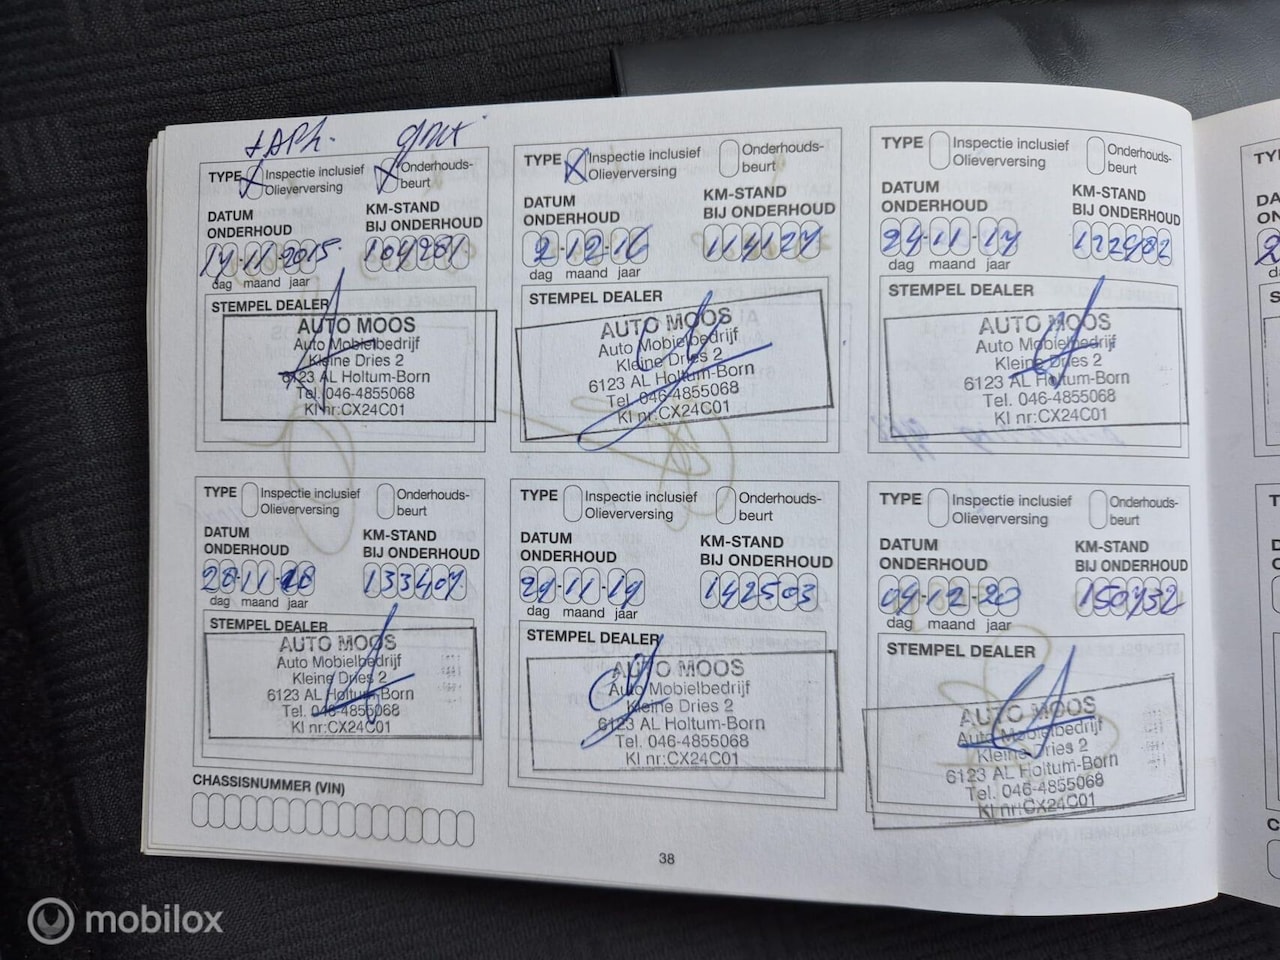 +APK. grtst
TYPE X Inspectie inclusief Olieverversing X Onderhouds- beurt
DATUM ONDERHOUD
KM-STAND BIJ ONDERHOUD
17-11-2015 104281
dag maand jaar
STEMPEL DEALER
AUTO MOOS
Auto Mobielbedrijf
Kleine Dries 2
6123 AL Holtum-Born
Tel. 046-4855068
KI nr:CX24C01
TYPE X Inspectie inclusief Olieverversing Onderhouds- beurt
DATUM ONDERHOUD
KM-STAND BIJ ONDERHOUD
2-12-16 114127
dag maand jaar
STEMPEL DEALER
AUTO MOOS
Auto Mobielbedrijf
Kleine Dries 2
6123 AL Holtum-Born
Tel. 046-4855068
KI nr:CX24C01
TYPE Inspectie inclusief Olieverversing Onderhouds- beurt
DATUM ONDERHOUD
KM-STAND BIJ ONDERHOUD
24-11-17 122982
dag maand jaar
STEMPEL DEALER
AUTO MOOS
Auto Mobielbedrijf
Kleine Dries 2
6123 AL Holtum-Born
Tel. 046-4855068
KI nr:CX24C01
TYPE Inspectie inclusief Olieverversing Onderhouds- beurt
DATUM ONDERHOUD
KM-STAND BIJ ONDERHOUD
28-11-18 133407
dag maand jaar
STEMPEL DEALER
AUTO MOOS
Auto Mobielbedrijf
Kleine Dries 2
6123 AL Holtum-Born
Tel. 046-4855068
KI nr:CX24C01
TYPE Inspectie inclusief Olieverversing Onderhouds- beurt
DATUM ONDERHOUD
KM-STAND BIJ ONDERHOUD
29-11-19 142503
dag maand jaar
STEMPEL DEALER
AUTO MOOS
Auto Mobielbedrijf
Kleine Dries 2
6123 AL Holtum-Born
Tel. 046-4855068
KI nr:CX24C01
TYPE Inspectie inclusief Olieverversing Onderhouds- beurt
DATUM ONDERHOUD
KM-STAND BIJ ONDERHOUD
04-12-20 150732
dag maand jaar
STEMPEL DEALER
AUTO MOOS
Auto Mobielbedrijf
Kleine Dries 2
6123 AL Holtum-Born
Tel. 046-4855068
KI nr:CX24C01
CHASSISNUMMER (VIN)
38
mobilox